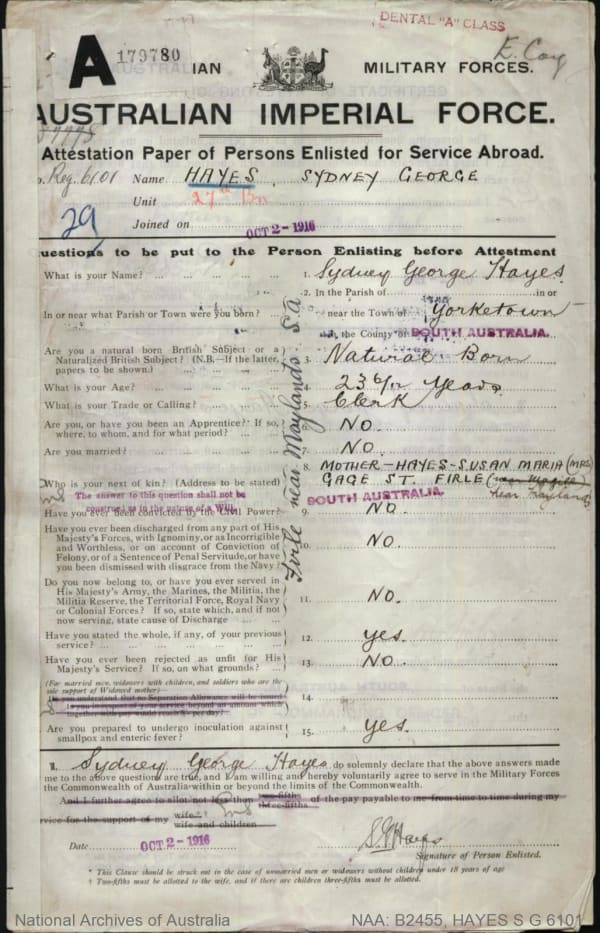 DENTAL "A" CLASS
E. Coy
A 179780 IAN MILITARY FORCES.
AUSTRALIAN IMPERIAL FORCE.
Attestation Paper of Persons Enlisted for Service Abroad.
Reg. 6101 Name HAYES, SYDNEY GEORGE
Unit 27th Bn
29
Joined on OCT 2-1916
uestions to be put to the Person Enlisting before Attestment
What is your Name? 1. Sydney George Hayes.
2. In the Parish of in or
In or near what Parish or Town were you born? near the Town of Yorketown
in the County of SOUTH AUSTRALIA.
Are you a natural born British Subject or a
Naturalized British Subject? (N.B.—If the latter, 3. Natural Born
papers to be shown.)
What is your Age? 4. 23 6/12 Years
What is your Trade or Calling? 5. Clerk
Are you, or have you been an Apprentice? If so, 6. NO.
where, to whom, and for what period?
Are you married? 7. NO.
8. MOTHER-HAYES-SUSAN MARIA (MRS)
Who is your next of kin? (Address to be stated) GAGE ST. FIRLE (near Magill)
near Maylands
The answer to this question shall not be SOUTH AUSTRALIA.
construed as in the nature of a Will.
Have you ever been convicted by the Civil Power? 9. NO.
Firle near Maylands. S.A
Have you ever been discharged from any part of His
Majesty's Forces, with Ignominy, or as Incorrigible
and Worthless, or on account of Conviction of 10. NO.
Felony, or of a Sentence of Penal Servitude, or have
you been dismissed with disgrace from the Navy?
Do you now belong to, or have you ever served in
His Majesty's Army, the Marines, the Militia, the
Militia Reserve, the Territorial Force, Royal Navy 11. NO.
or Colonial Forces? If so, state which, and if not
now serving, state cause of Discharge
Have you stated the whole, if any, of your previous 12. yes.
service?
Have you ever been rejected as unfit for His 13. NO.
Majesty's Service? If so, on what grounds?
(For married men, widowers with children, and soldiers who are the
sole support of Widowed mother)
Do you understand that no Separation Allowance will be issued 14.
in respect of your service beyond an amount which
together with pay would reach 8s. per day?
Are you prepared to undergo inoculation against 15. yes.
smallpox and enteric fever?
I, Sydney George Hayes do solemnly declare that the above answers made
me to the above questions are true, and I am willing and hereby voluntarily agree to serve in the Military Forces
the Commonwealth of Australia within or beyond the limits of the Commonwealth.
And I further agree to allot not less than two-fifths of the pay payable to me from time to time during my
three-fifths
rvice for the support of my wife
wife and children
Date OCT 2-1916 S.G. Hayes
Signature of Person Enlisted.
* This Clause should be struck out in the case of unmarried men or widowers without children under 18 years of age
† Two-fifths must be allotted to the wife, and if there are children three-fifths must be allotted.
National Archives of Australia NAA: B2455, HAYES S G 6101